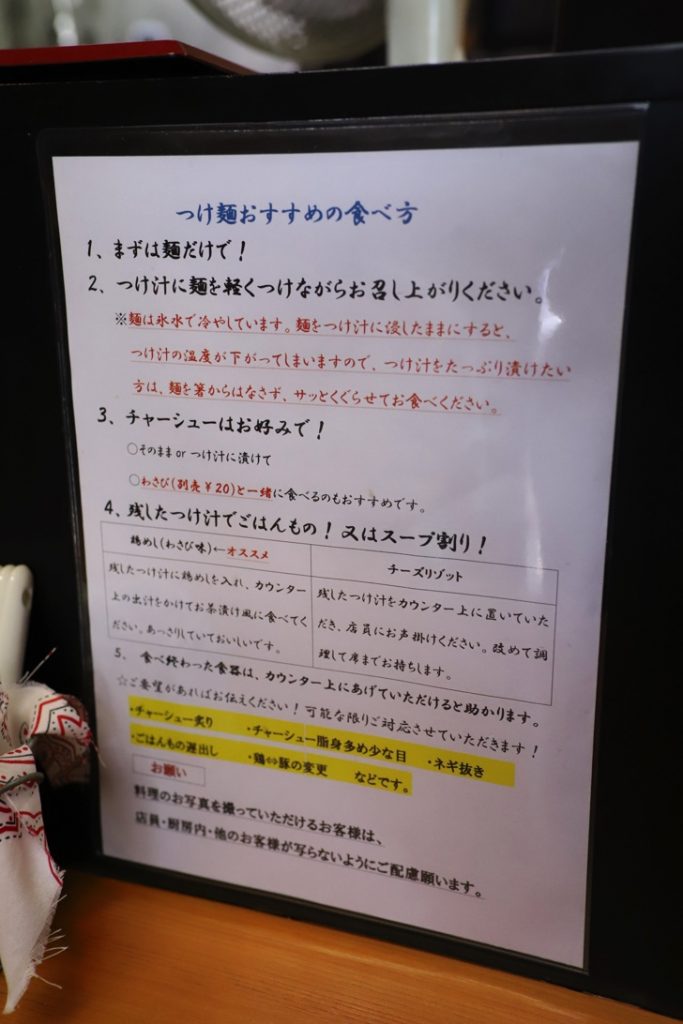 つけ麺おすすめの食べ方
1、まずは麺だけで！
2、つけ汁に麺を軽くつけながらお召し上がりください。
※麺は氷水で冷やしています。麺をつけ汁に浸したままにすると、
つけ汁の温度が下がってしまいますので、つけ汁をたっぷり漬けたい
方は、麺を箸からはなさず、サッとくぐらせてお食べください。
3、チャーシューはお好みで！
○そのまま or つけ汁に漬けて
○わさび(別売￥20)と一緒に食べるのもおすすめです。
4、残したつけ汁でごはんもの！又はスープ割り！
鶏めし(わさび味)←オススメ
残したつけ汁に鶏めしを入れ、カウンター
上の出汁をかけてお茶漬け風に食べてく
ださい。あっさりしていておいしいです。
チーズリゾット
残したつけ汁をカウンター上に置いていた
だき、店員にお声掛けください。改めて調
理して席までお持ちします。
5、食べ終わった食器は、カウンター上にあげていただけると助かります。
☆ご要望があればお伝えください！可能な限りご対応させていただきます！
・チャーシュー炙り ・チャーシュー脂身多め少な目 ・ネギ抜き
・ごはんもの遅出し ・鶏⇔豚の変更 などです。
お願い
料理のお写真を撮っていただけるお客様は、
店員・厨房内・他のお客様が写らないようにご配慮願います。